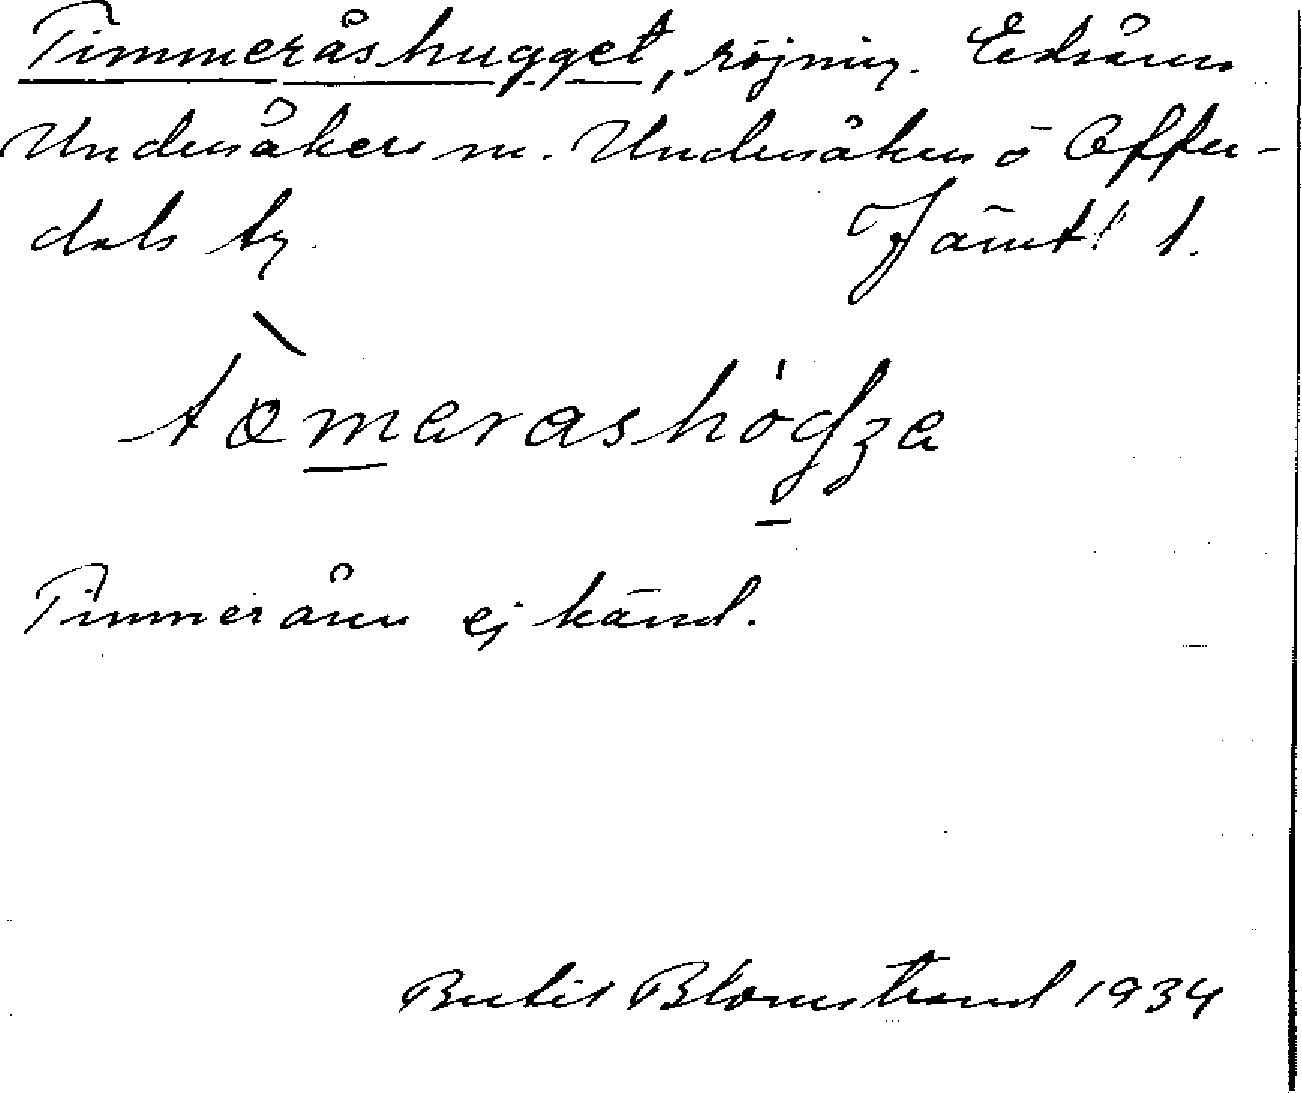 Timmeråshugget, röjning. Edsåsen
Undersåkers sn. Undersåkers o Offer-
dals tg. Jämtl l.
tömerashögʒe
Timmeråsen ej känd.
Bertil Blomstrand 1934